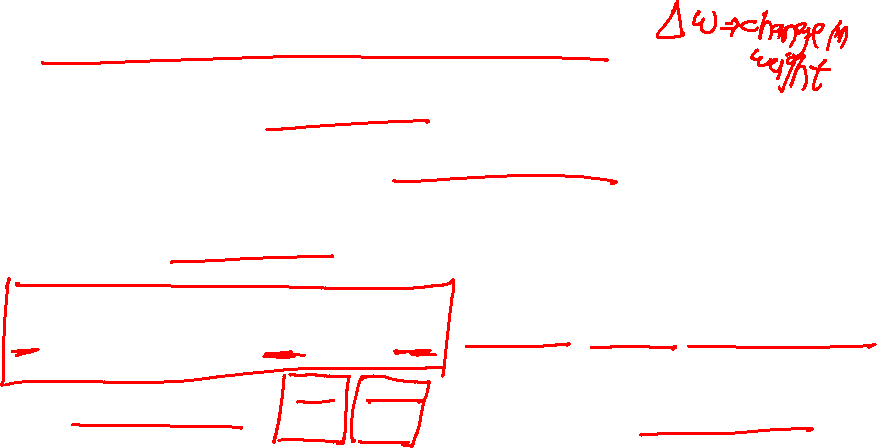 Δw → change in
weight